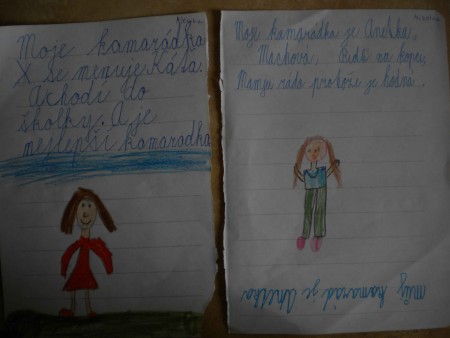 Moje kamarádka
X se menuje Káťa.
A chodí do
školky. A je
nejlepší kamaradka
Moje kamaradka je Anetka,
Machova, Bidlí na kopci,
Mamju ráda protože je hodná.
můj kamarád je Anetka